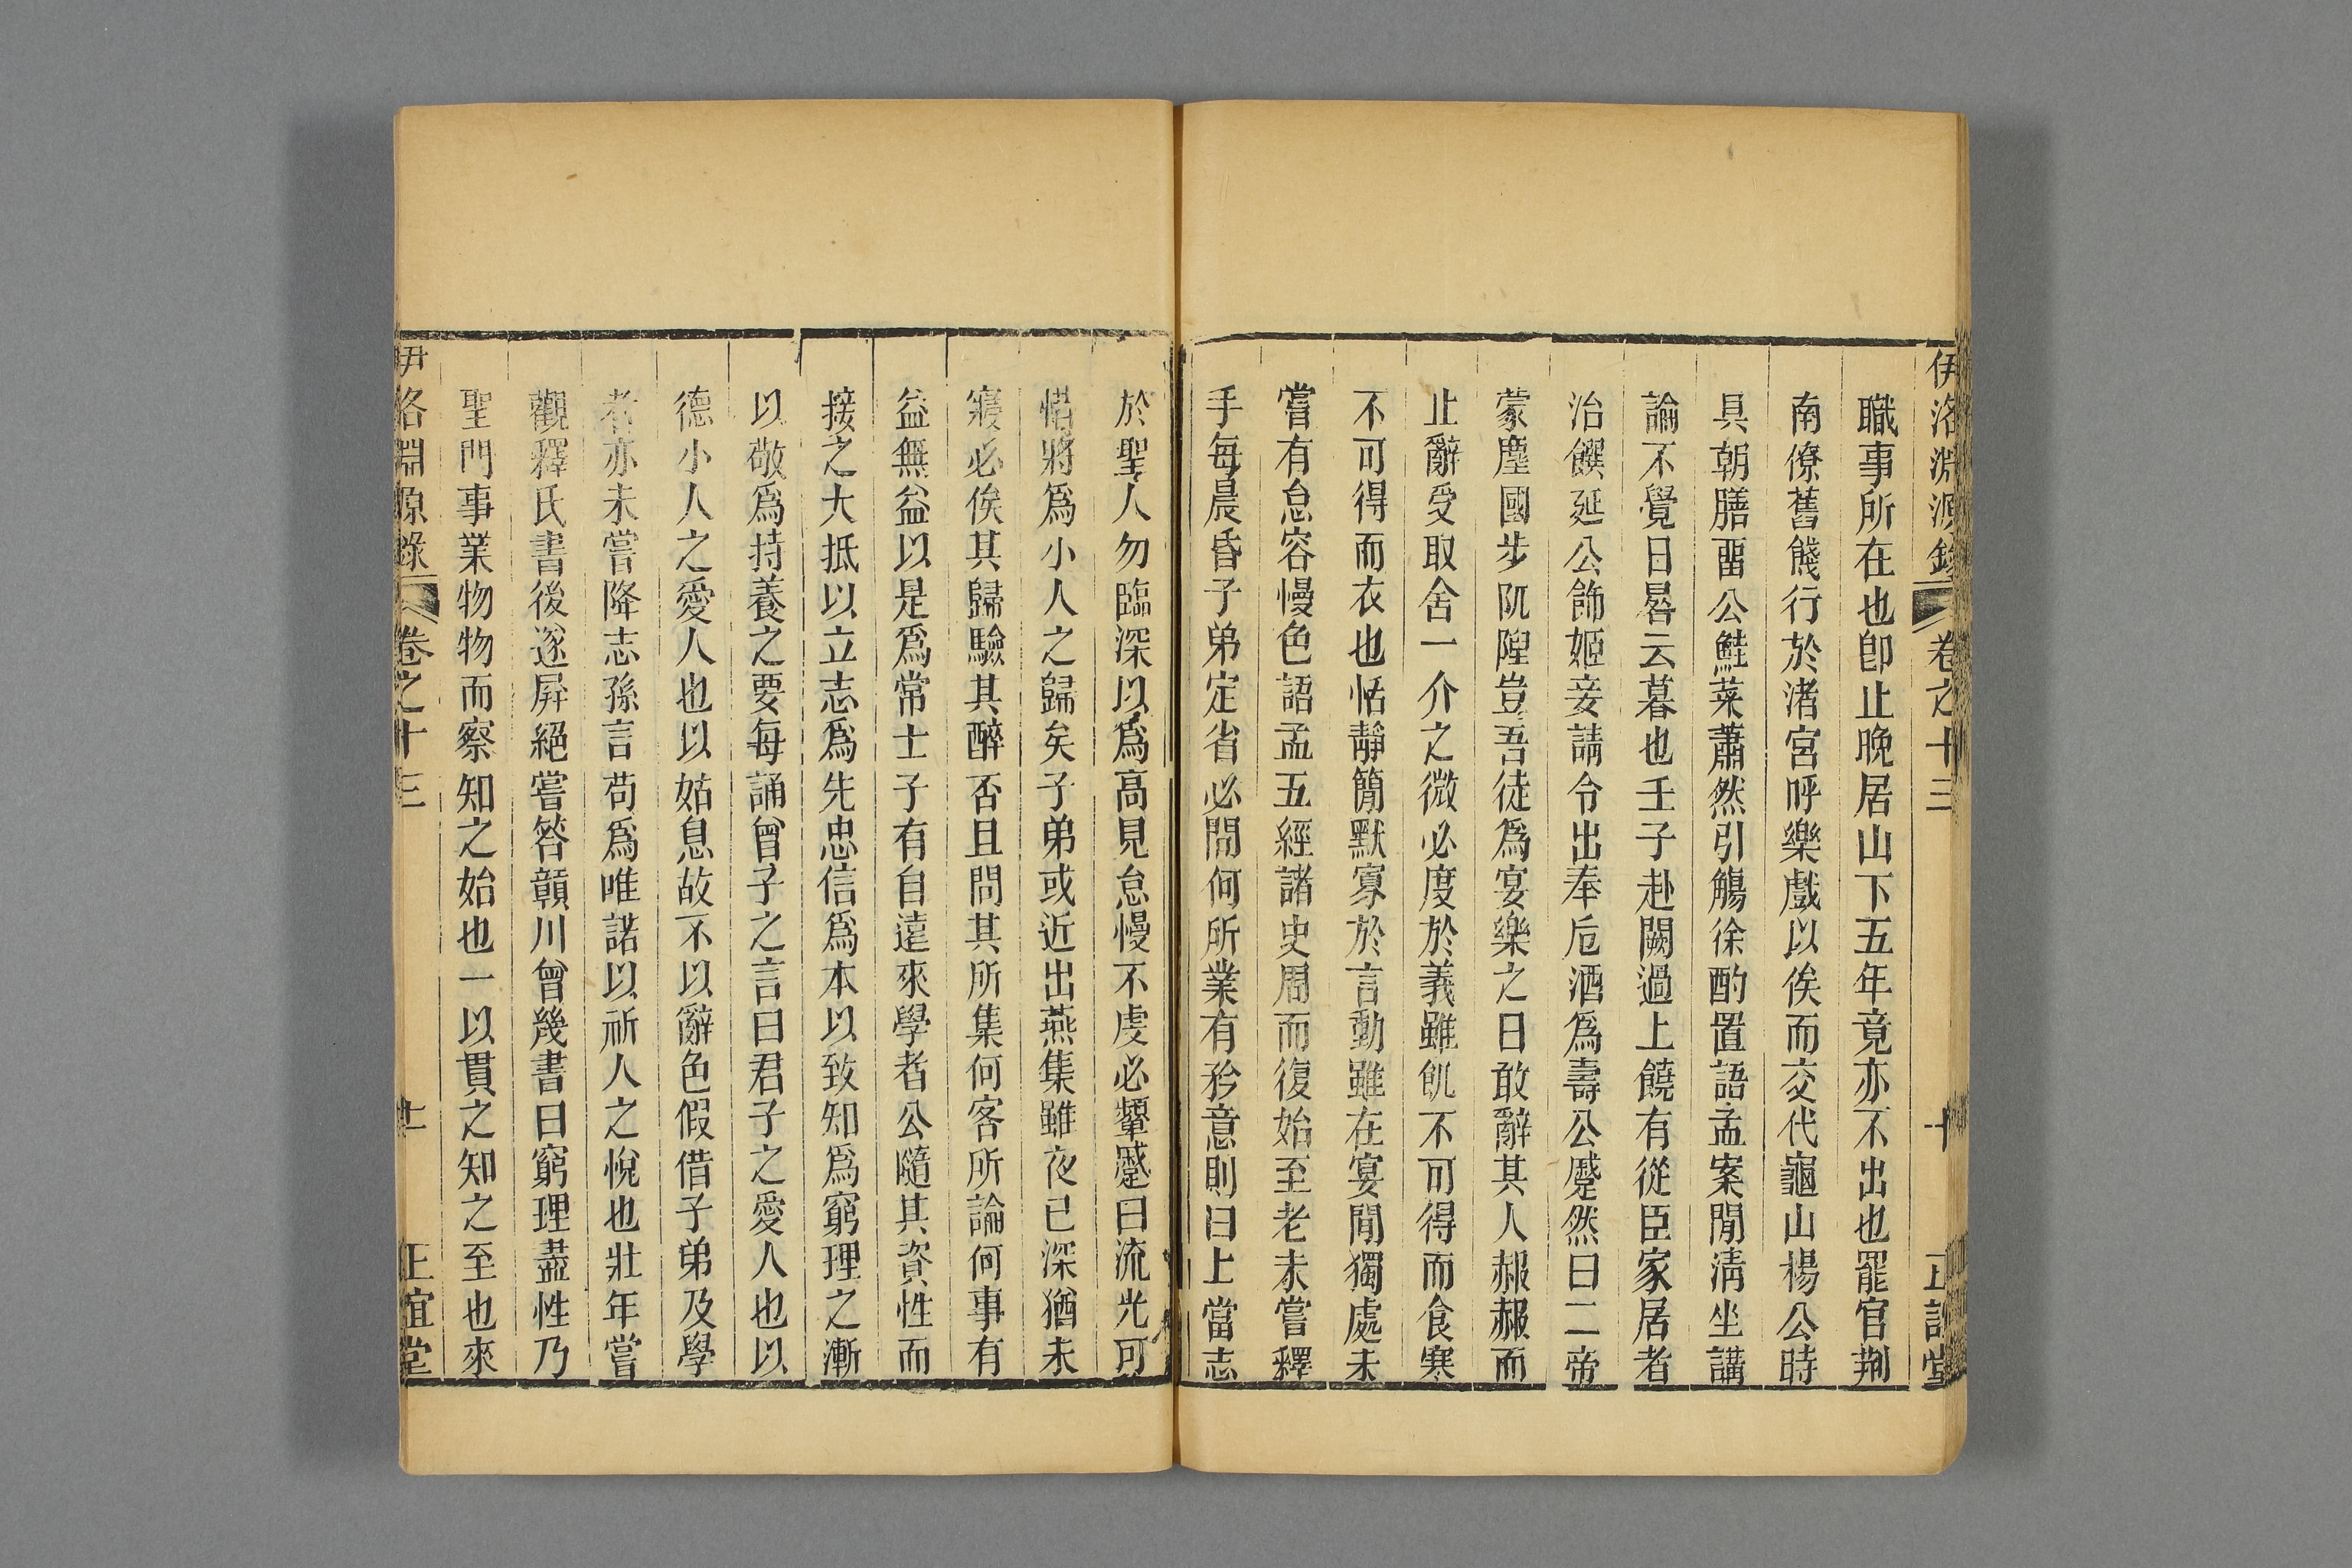 伊洛淵源錄 卷之十三 十 正誼堂
職事所在也卽止晚居山下五年竟亦不出也罷官荆
南僚舊餞行於渚宮呼樂戲以俟而交代龜山楊公時
具朝膳畱公鮭菜蕭然引觴徐酌置語孟案閒淸坐講
論不覺日晷云暮也壬子赴闕過上饒有從臣家居者
治饌延公飾姬妾請令出奉卮酒爲壽公蹙然曰二帝
蒙塵國步阢隉豈吾徒爲宴樂之日敢辭其人赧赧而
止辭受取舍一介之微必度於義雖飢不可得而食寒
不可得而衣也恬靜簡默寡於言動雖在宴閒獨處未
嘗有怠容慢色語孟五經諸史周而復始至老未嘗釋
手每晨昏子弟定省必問何所業有矜意則曰上當志
於聖人勿臨深以爲高見怠慢不虔必顰蹙曰流光可
惜將爲小人之歸矣子弟或近出燕集雖夜已深猶未
寢必俟其歸驗其醉否且問其所集何客所論何事有
益無益以是爲常士子有自遠來學者公隨其資性而
接之大抵以立志爲先忠信爲本以致知爲窮理之漸
以敬爲持養之要每誦曾子之言曰君子之愛人也以
德小人之愛人也以姑息故不以辭色假借子弟及學
者亦未嘗降志孫言苟爲唯諾以祈人之悅也壯年嘗
觀釋氏書後遂屛絕嘗答贑川曾幾書曰窮理盡性乃
聖門事業物物而察知之始也一以貫之知之至也來
伊洛淵源錄 卷之十三 十一 正誼堂